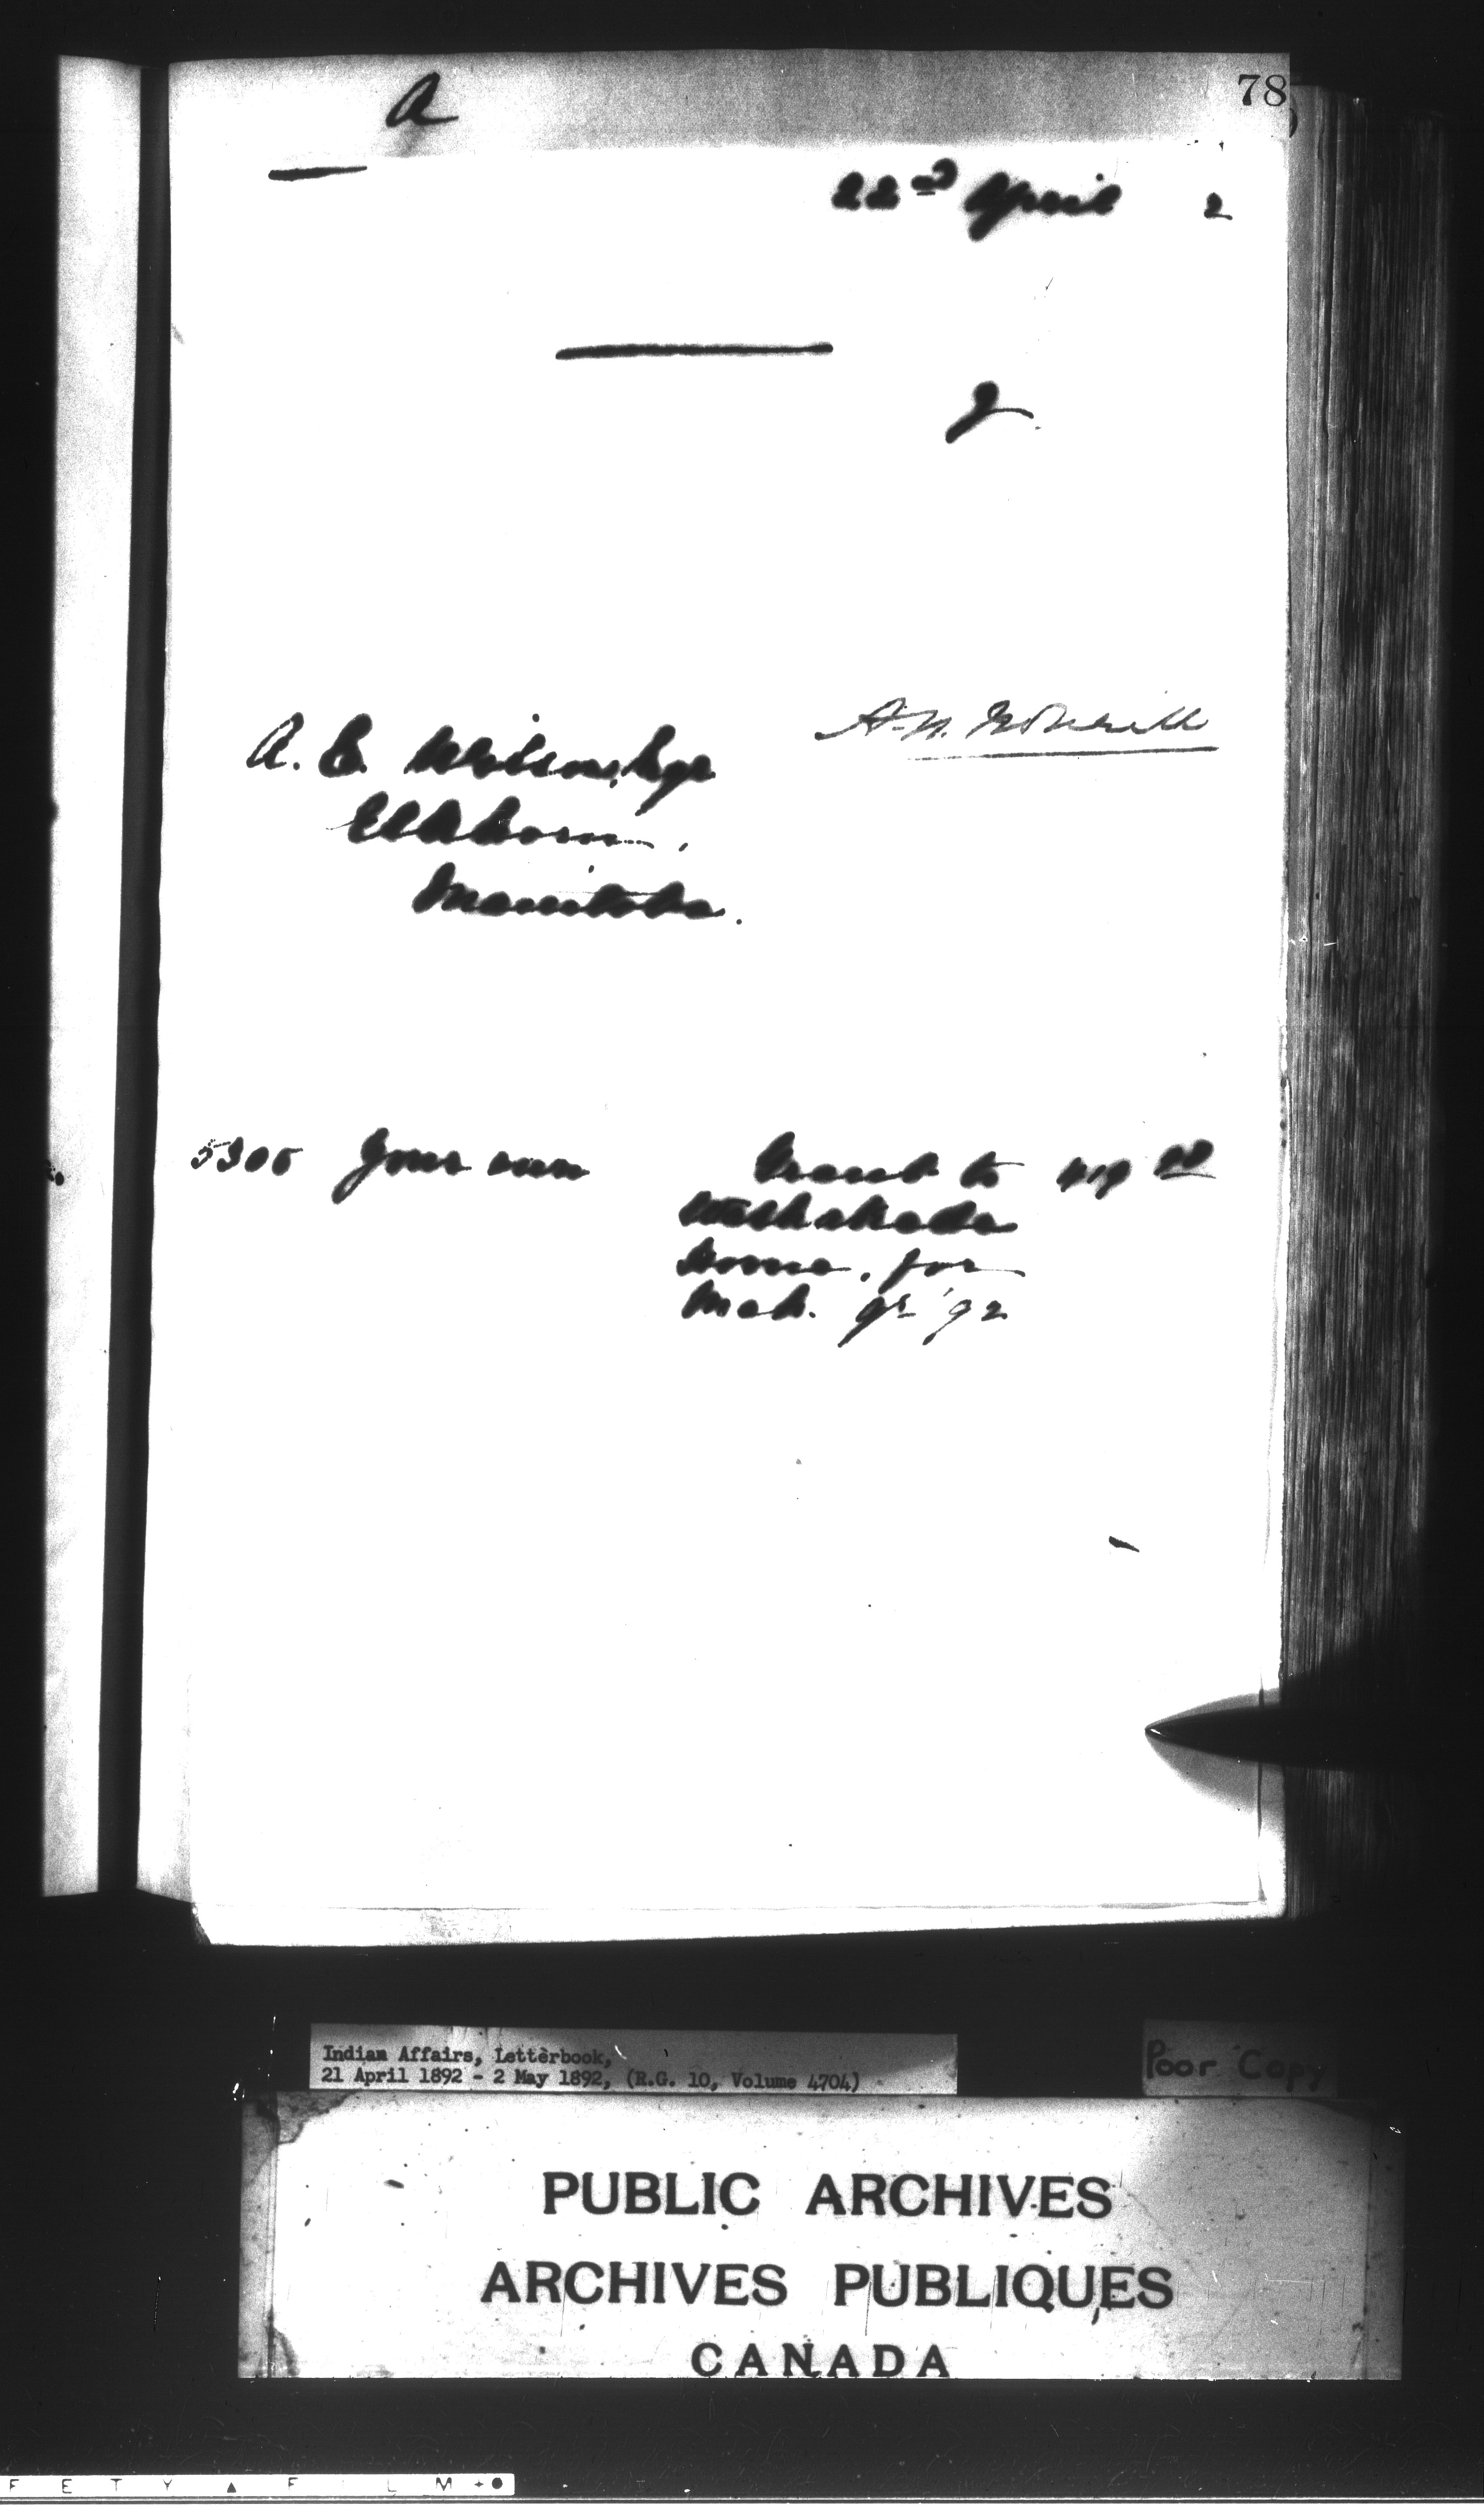 78
A
22nd April 2
A. E. Wilson, Esqr
Elkhorn,
Manitoba.
5305 your own Grant to
Washakada
Home, for
Mch. qr '92
Indian Affairs, Letterbook,
21 April 1892 - 2 May 1892, (R.G. 10, Volume 4704)
Poor Copy
PUBLIC ARCHIVES
ARCHIVES PUBLIQUES
CANADA
F E T Y ▲ F I L M